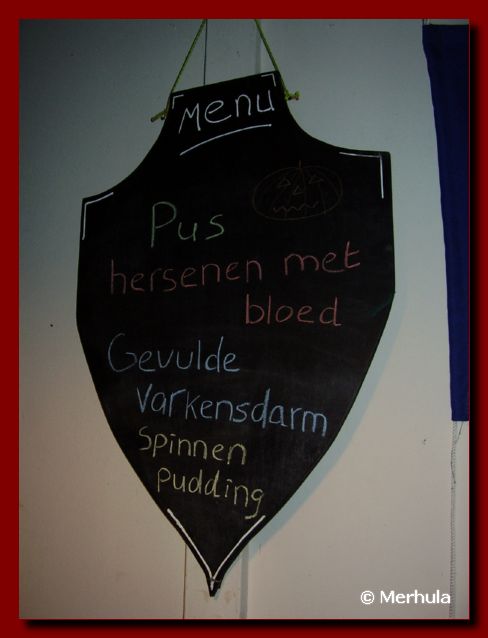 Menu
Pus
hersenen met
bloed
Gevulde
varkensdarm
Spinnen
pudding
© Merhula